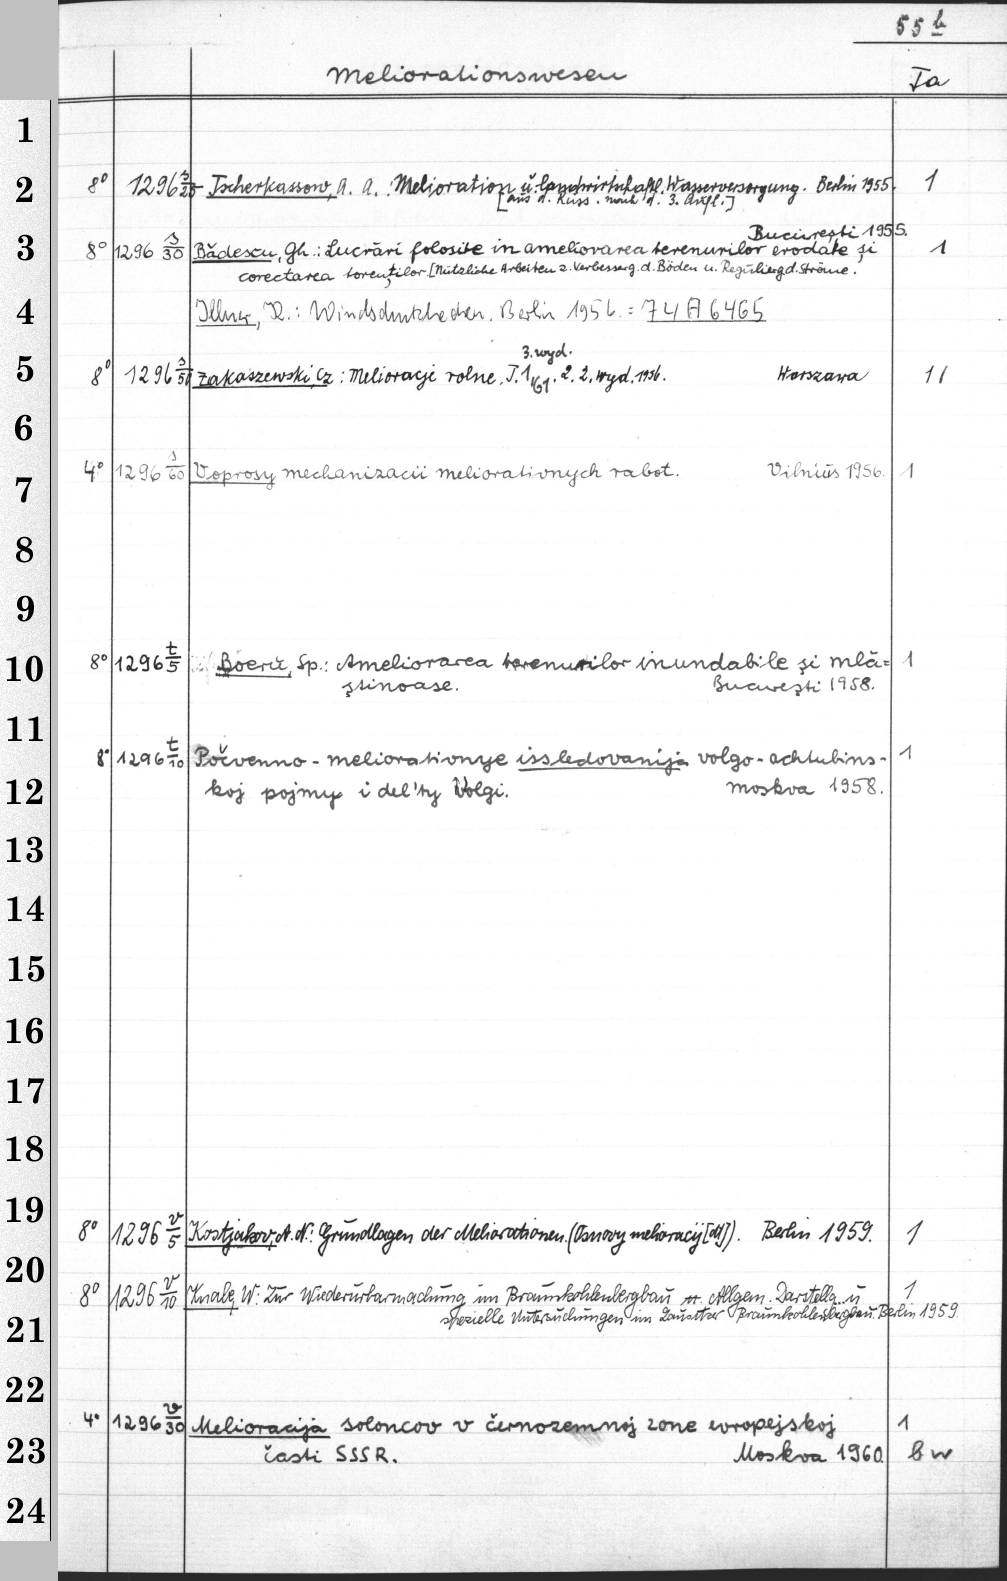 55 b
Meliorationswesen Ta
1
2 8° 1296 s/25 Tscherkassow, A. A.: Melioration u. landwirtschaftl. Wasserversorgung. Berlin 1955. 1
[aus d. Russ. nach d. 3. Aufl.]
București 1955.
3 8° 1296 s/30 Bădescu, Gh.: Lucrări folosite in ameliorarea terenurilor erodate și 1
corectarea torenților [Nützliche Arbeiten z. Verbesserg. d. Böden u. Regulierg d. Ströme.
4 Illner, K.: Windschutzhecken. Berlin 1956. = 74 A 6465
3. wyd.
5 8° 1296 s/50 Zakaszewski, Cz: Melioracje rolne. T. 1. /61. 2. 2. wyd. 1956. Warszawa 11
6
7 4° 1296 s/60 Voprosy mechanizacii meliorativnych rabot. Vilnius 1956. 1
8
9
10 8° 1296 t/5 Boeru, Sp.: Ameliorarea terenurilor inundabile și mlă= 1
știnoase. București 1958.
11 8° 1296 t/10 Počvenno-meliorativnye issledovanija volgo-achtubins- 1
12 koj pojmy i del'ty Volgi. Moskva 1958.
13
14
15
16
17
18
19 8° 1296 v/5 Kostjakov, A. N.: Grundlagen der Meliorationen. (Osnovy melioracij [dt]). Berlin 1959. 1
20 8° 1296 v/10 Knabe, W: Zur Wiederurbarmachung im Braunkohlenbergbau Allgem. Darstellg. u 1
21 spezielle Untersuchungen im Lausitzer Braunkohlenbergbau. Berlin 1959.
22 4° 1296 v/30 Melioracija soloncov v černozemnoj zone evropejskoj 1
23 časti SSSR. Moskva 1960. b w
24